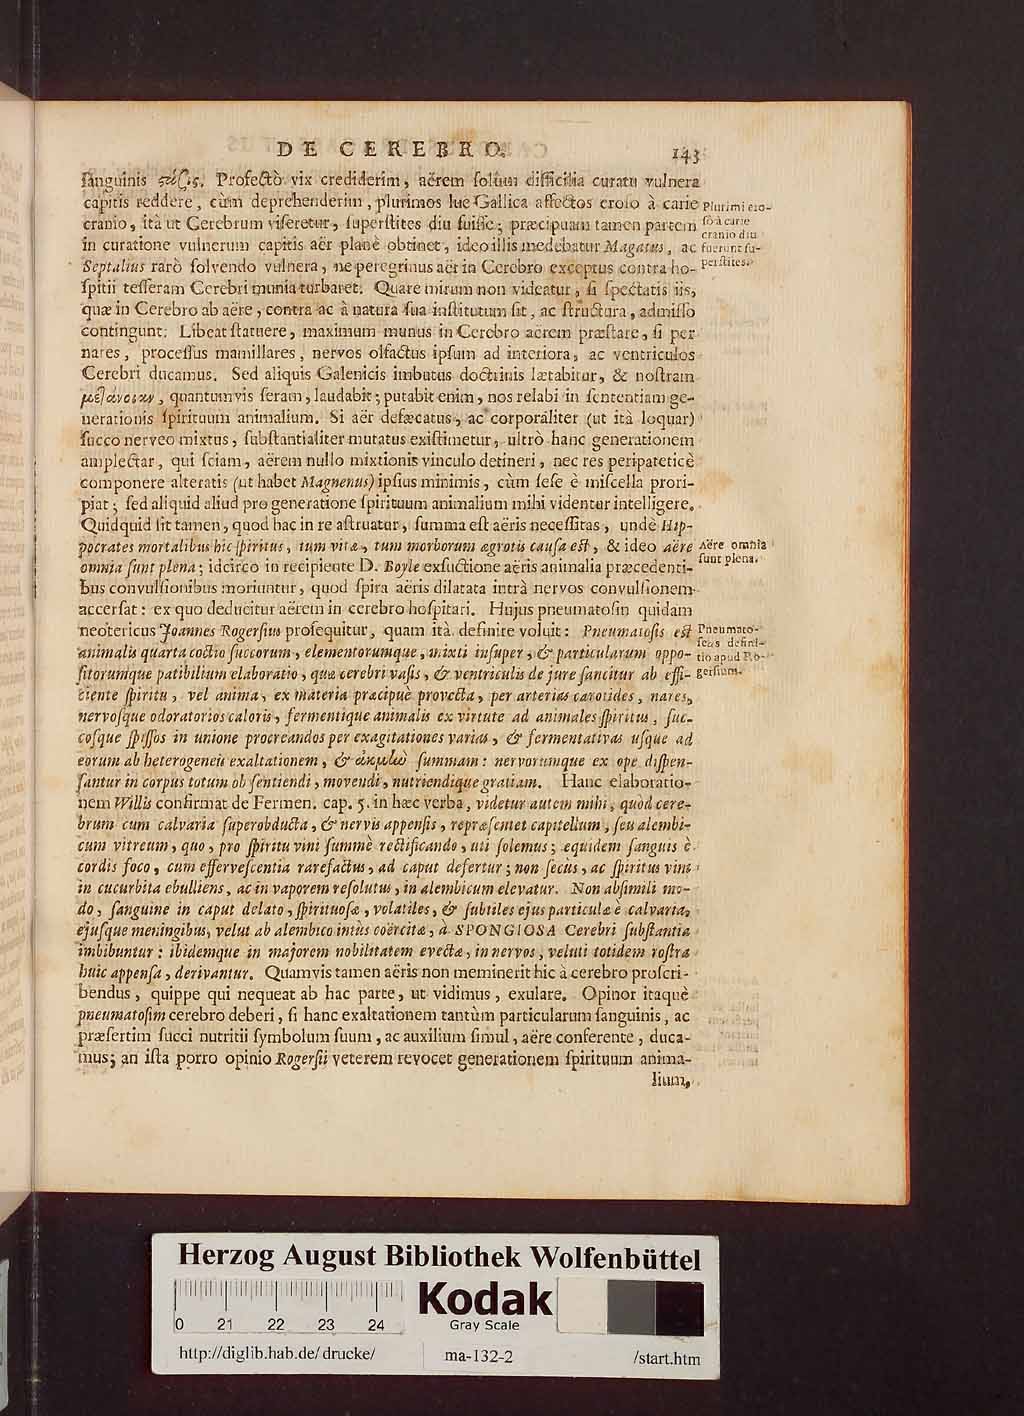 DE CEREBRO. 143
ſanguinis ςάζις. Profectò vix crediderim, aërem ſolùm difficilia curatu vulnera
capitis reddere, cùm deprehenderim, plurimos lue Gallica affectos eroſo à carie
cranio, ità ut Cerebrum viſeretur, ſuperſtites diu fuiſſe; præcipuam tamen partem
in curatione vulnerum capitis aër planè obtinet, ideo illis medebatur Magatus, ac
Septalius rarò ſolvendo vulnera, ne peregrinus aër in Cerebro exceptus contra ho-
ſpitii teſſeram Cerebri munia turbaret. Quare mirum non videatur, ſi ſpectatis iis,
quæ in Cerebro ab aëre, contra ac à natura ſua inſtitutum ſit, ac ſtructura, admiſſo
contingunt. Libeat ſtatuere, maximum munus in Cerebro aërem præſtare, ſi per
nares, proceſſus mamillares, nervos olfactus ipſum ad interiora, ac ventriculos
Cerebri ducamus. Sed aliquis Galenicis imbutus doctrinis lætabitur, & noſtram
μεζάνοιαν, quantumvis ſeram, laudabit; putabit enim, nos relabi in ſententiam ge-
nerationis ſpirituum animalium. Si aër defæcatus, ac corporaliter (ut ità loquar)
ſucco nerveo mixtus, ſubſtantialiter mutatus exiſtimetur, ultrò hanc generationem
amplectar, qui ſciam, aërem nullo mixtionis vinculo detineri, nec res peripateticè
componere alteratis (ut habet Magnenus) ipſius minimis, cùm ſeſe è miſcella prori-
piat; ſed aliquid aliud pro generatione ſpirituum animalium mihi videntur intelligere.
Quidquid ſit tamen, quod hac in re aſtruatur, ſumma eſt aëris neceſſitas, undè Hip-
pocrates mortalibus hic ſpiritus, tum vitæ, tum morborum ægrotis cauſa est, & ideo aëre
omnia ſunt plena; idcirco in recipiente D. Boyle exſuctione aëris animalia præcedenti-
bus convulſionibus moriuntur, quod ſpira aëris dilatata intrà nervos convulſionem
accerſat: ex quo deducitur aërem in cerebro hoſpitari. Hujus pneumatoſin quidam
neotericus Joannes Rogerſius proſequitur, quam ità definire voluit: Pneumatoſis est
animalis quarta coctio ſuccorum, elementorumque, mixti inſuper, & particularum oppo-
ſitorumque patibilium elaboratio, quæ cerebri vaſis, & ventriculis de jure ſancitur ab effi-
ciente ſpiritu, vel anima, ex materia præcipuè provecta, per arterias carotides, nares,
nervoſque odoratorios caloris, fermentique animalis ex virtute ad animales ſpiritus, ſuc-
coſque ſpiſſos in unione procreandos per exagitationes varias, & fermentativas uſque ad
eorum ab heterogeneis exaltationem, & ἀκμὼ ſummam: nervorumque ex ope diſpen-
ſantur in corpus totum ob ſentiendi, movendi, nutriendique gratiam. Hanc elaboratio-
nem Willis confirmat de Fermen. cap. 5. in hæc verba, videtur autem mihi, quòd cere-
brum cum calvaria ſuperobducta, & nervis appenſis, repræſentet capitellum, ſeu alembi-
cum vitreum, quo, pro ſpiritu vini ſummè rectificando, uti ſolemus; æquidem ſanguis è
cordis foco, cum efferveſcentia rarefactus, ad caput defertur; non ſecùs, ac ſpiritus vini
in cucurbita ebulliens, ac in vaporem reſolutus, in alembicum elevatur. Non abſimili mo-
do, ſanguine in caput delato, ſpirituoſæ, volatiles, & ſubtiles ejus particulæ è calvaria,
ejuſque meningibus, velut ab alembico intùs coërcitæ, à SPONGIOSA Cerebri ſubſtantia
imbibuntur: ibidemque in majorem nobilitatem evectæ, in nervos, veluti totidem roſtra
huic appenſa, derivantur. Quamvis tamen aëris non meminerit hic à cerebro proſcri-
bendus, quippe qui nequeat ab hac parte, ut vidimus, exulare. Opinor itaquè
pneumatoſim cerebro deberi, ſi hanc exaltationem tantùm particularum ſanguinis, ac
præſertim ſucci nutritii ſymbolum ſuum, ac auxilium ſimul, aëre conferente, duca-
mus; an iſta porro opinio Rogerſii veterem revocet generationem ſpirituum anima-
lium,
Plurimi ero-
ſo à carie
cranio diu
fuerunt ſu-
perſtites.
Aëre omnia
ſunt plena.
Pneumato-
ſeus defini-
tio apud Ro-
gerſium.
Herzog August Bibliothek Wolfenbüttel
0 21 22 23 24
Kodak
Gray Scale
http://diglib.hab.de/drucke/ ma-132-2 /start.htm